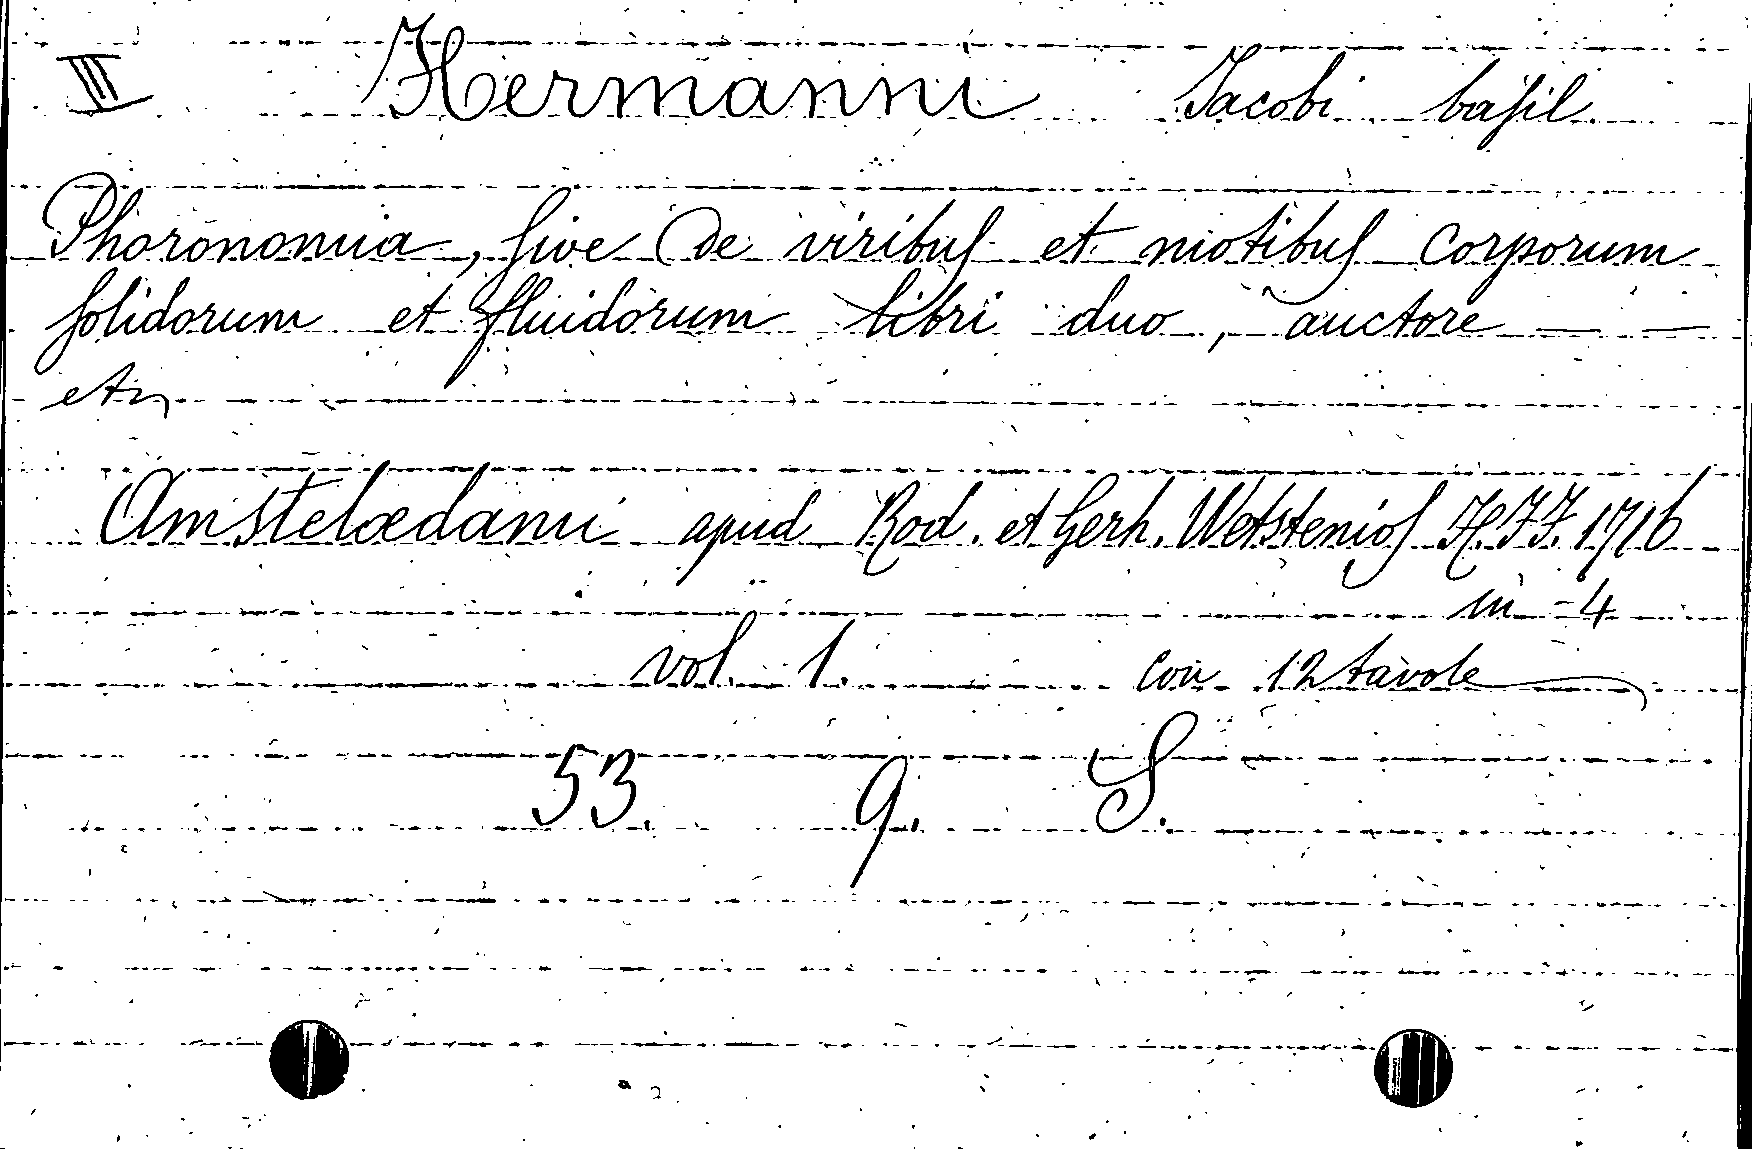 III Hermanni Jacobi basil.
Phoronomia, sive De viribus et motibus corporum
solidorum et fluidorum libri duo, auctore — —
etc
Amstelædami apud Rod. et Gerh. Wetstenios H. FF. 1716
in - 4
vol. 1. con 12 tavole
53. 9. S.